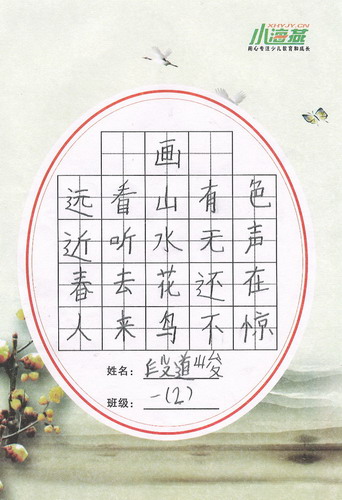 XHYJY.CN
小海燕
用心专注少儿教育和成长
画
远看山有色
近听水无声
春去花还在
人来鸟不惊
姓名：段道峻
班级：一(2)